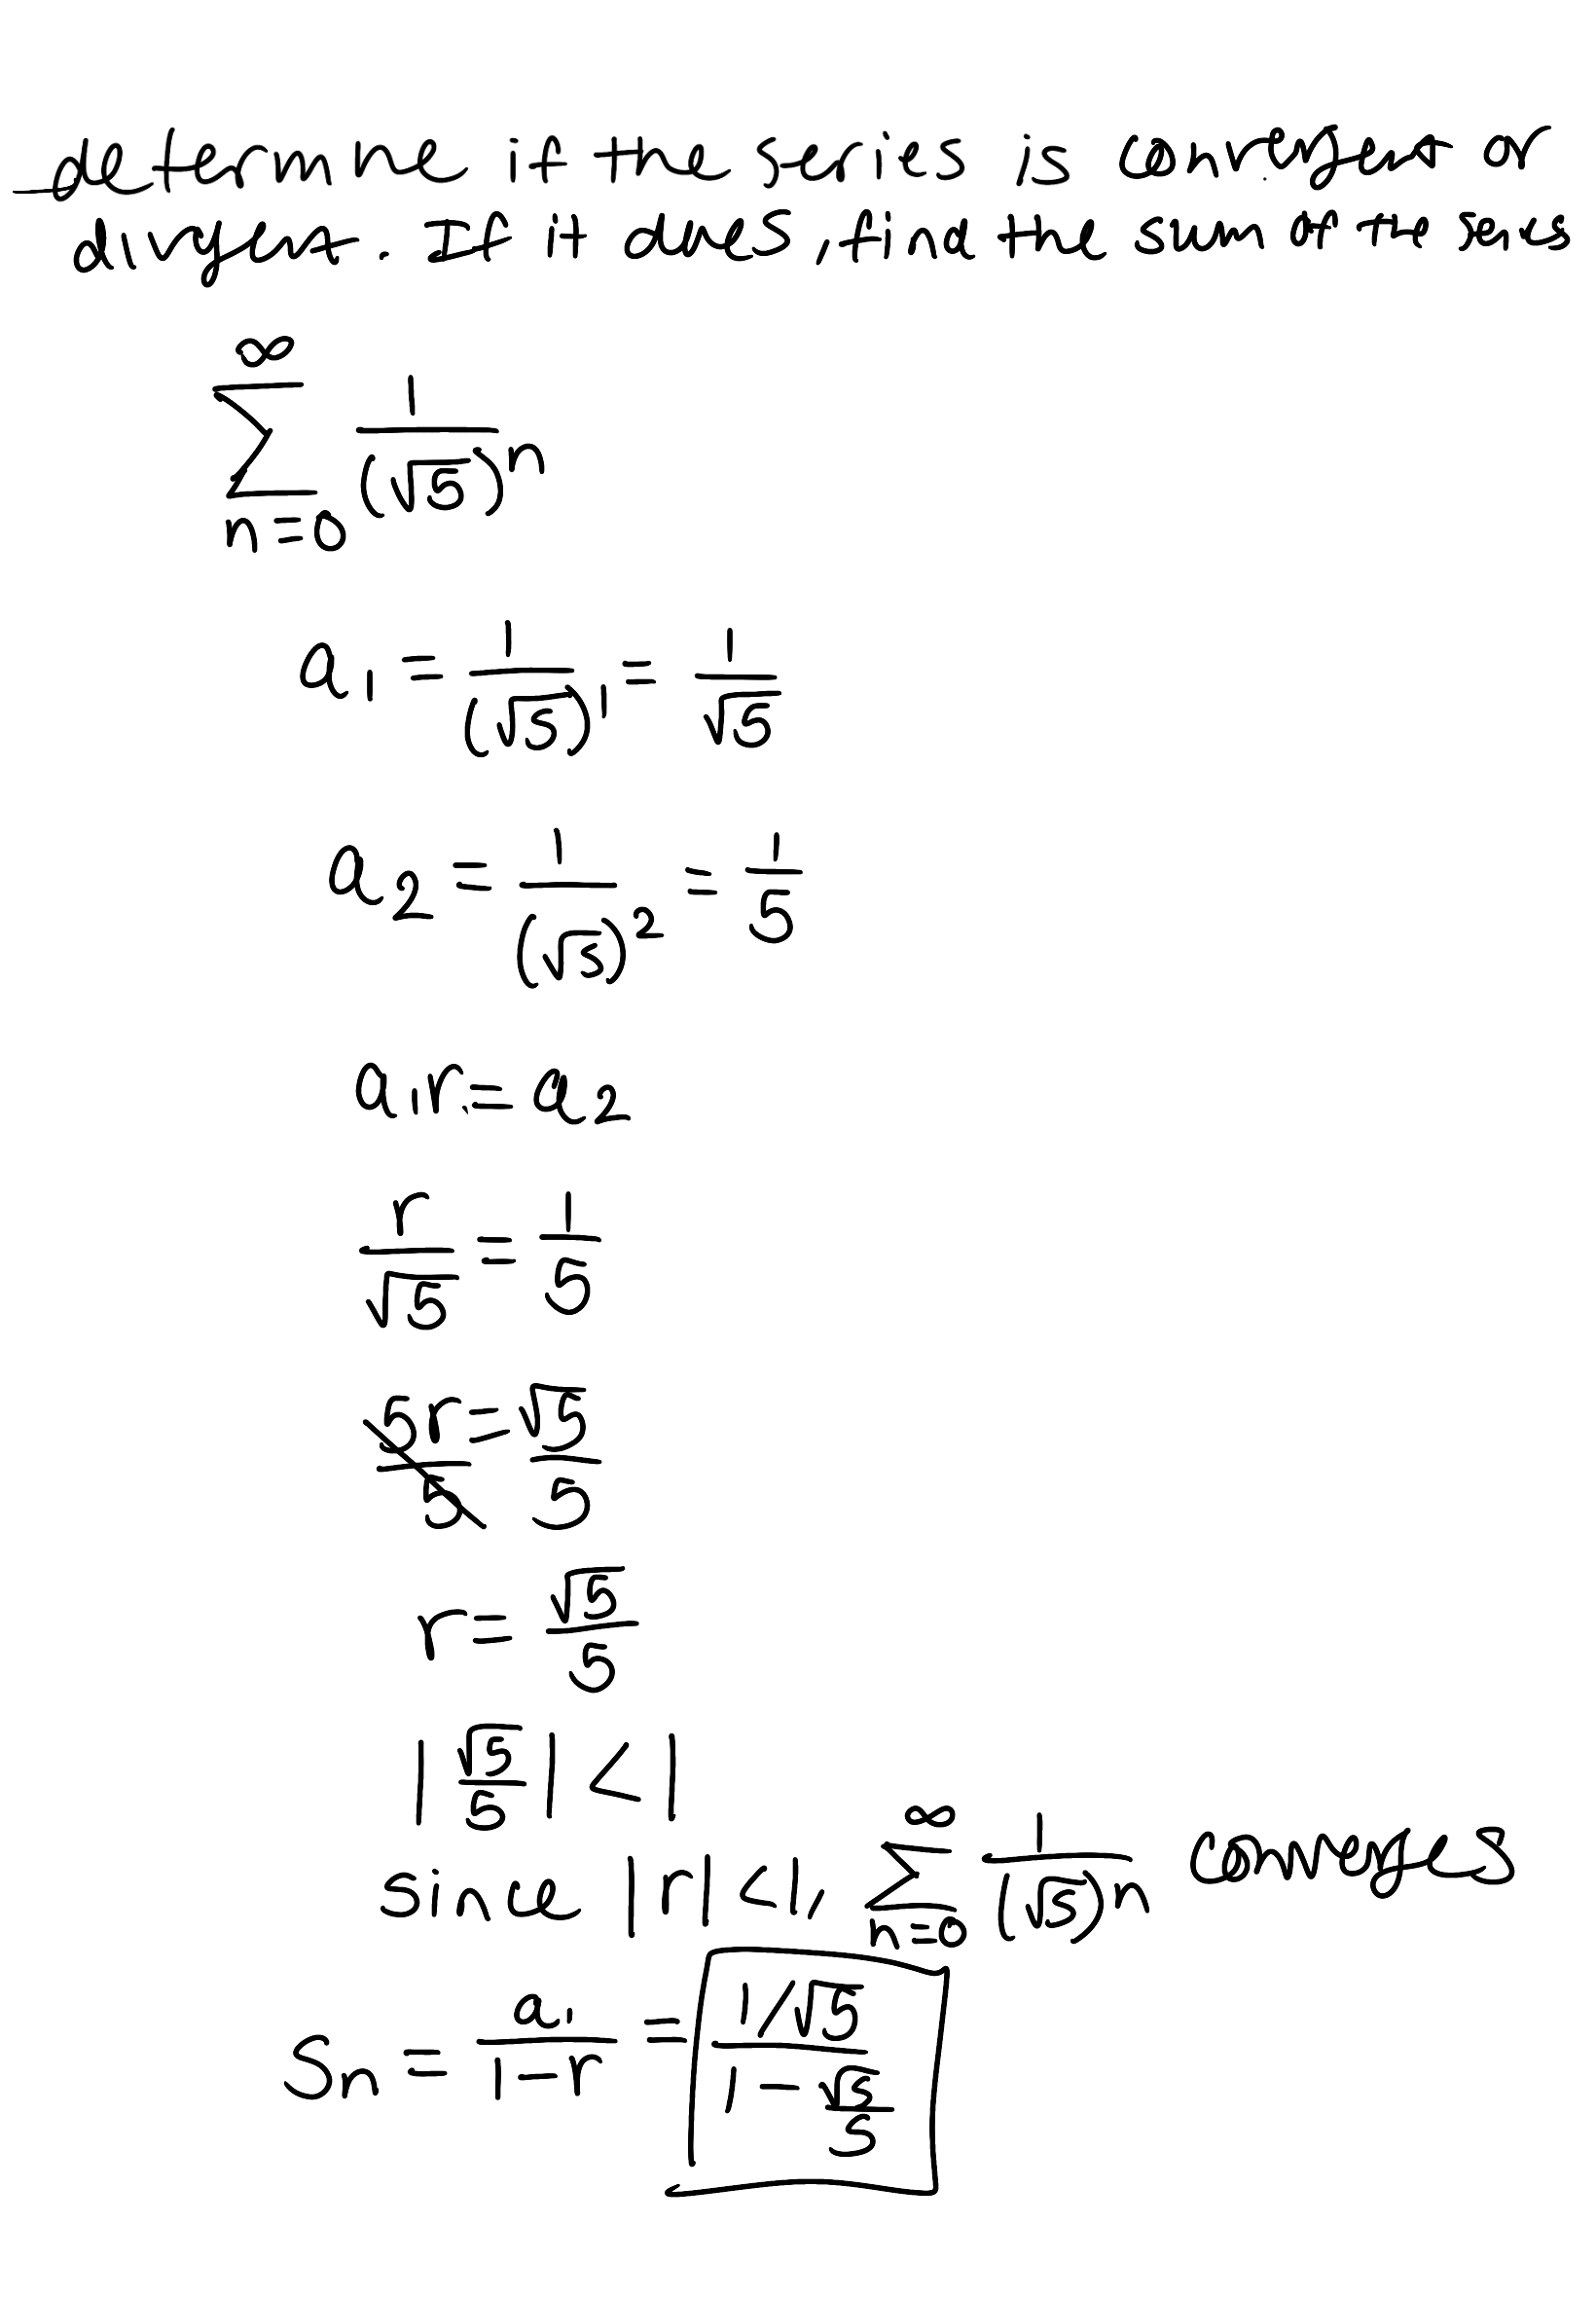 determine if the series is convergent or
divergent. If it does, find the sum of the series
∞
∑ 1/(√5)^n
n=0
a₁ = 1/(√5)^1 = 1/√5
a₂ = 1/(√5)^2 = 1/5
a₁r = a₂
r/√5 = 1/5
5r/5 = √5/5
r = √5/5
|√5/5| < 1
since |r| < 1, ∑_{n=0}^{∞} 1/(√5)^n converges
Sn = a₁/(1-r) = (1/√5)/(1 - √5/5)